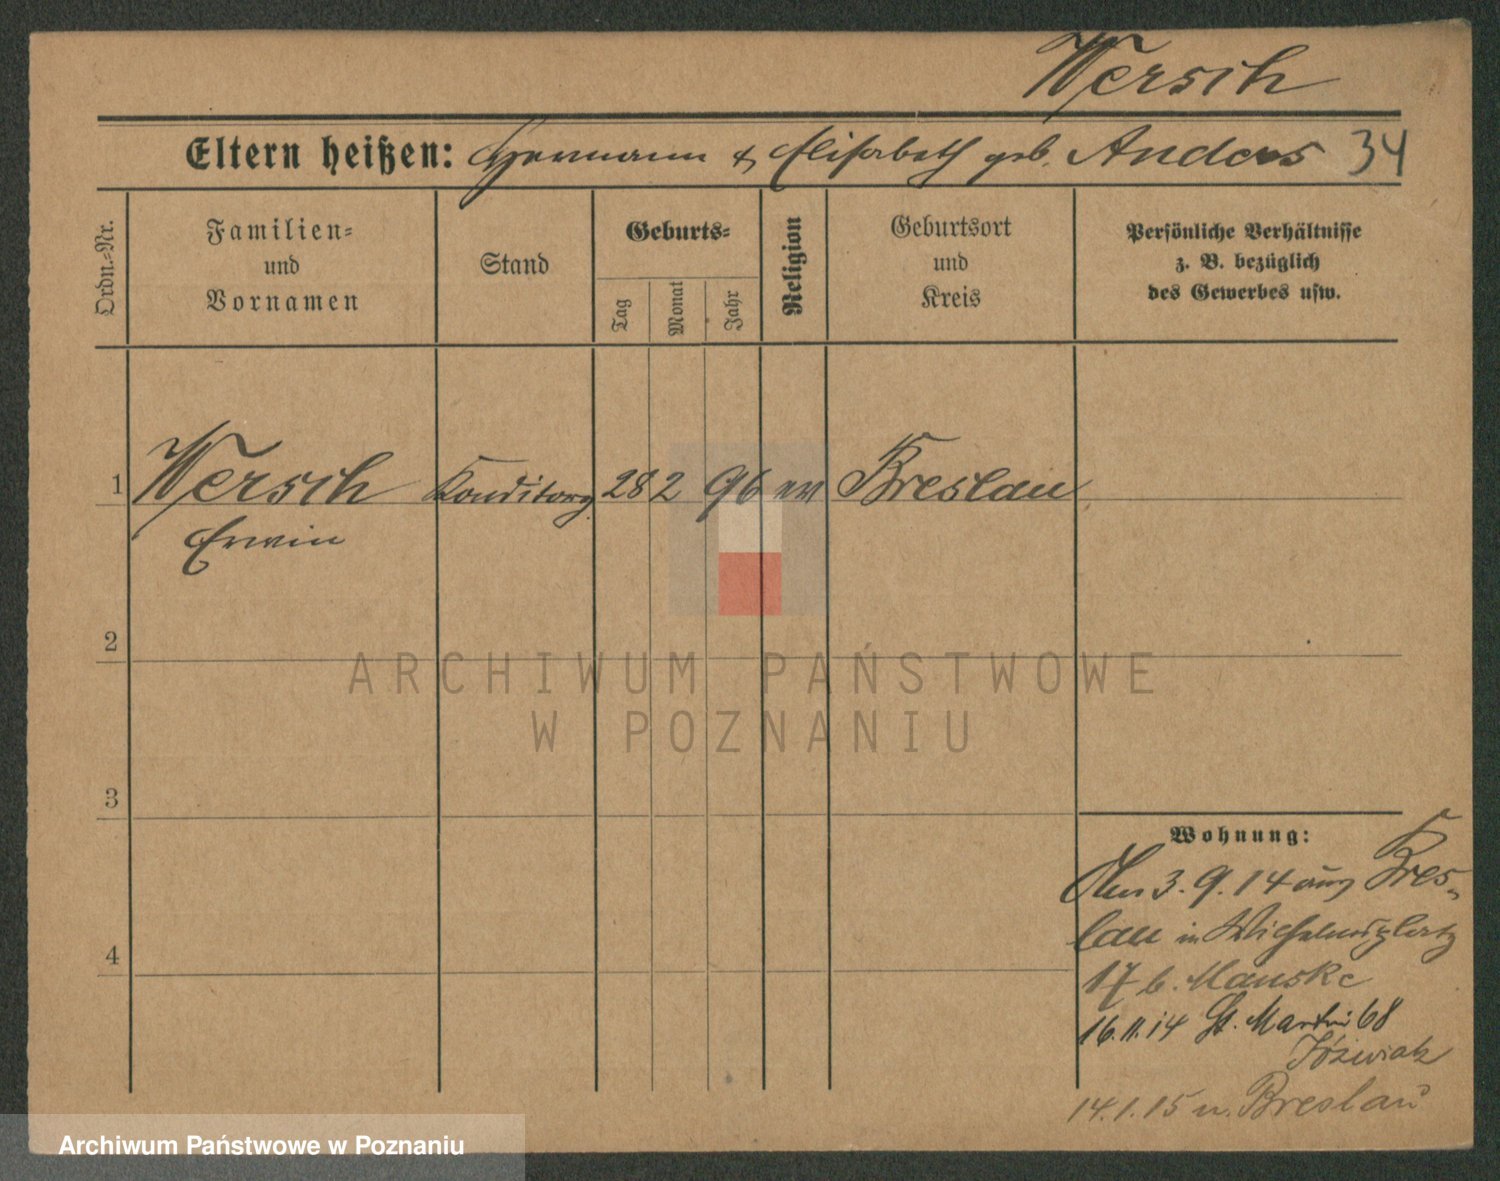 Wersch
Eltern heißen: Hermann & Elisabeth geb. Anders 34
Ordn.-Nr.
Familien-
und
Vornamen
Stand
Geburts-
Tag
Monat
Jahr
Religion
Geburtsort
und
Kreis
Persönliche Verhältnisse
z. B. bezüglich
des Gewerbes usw.
1 Wersch Konditorg. 28 2 96 ev Breslau
Erwin
2
3
4
Wohnung:
3.9.14 aus Bres-
lau in Wilhelmsplatz
17 b. Manske
16.11.14 St. Martin 68
Jóźwiak
14.1.15 n. Breslau
ARCHIWUM PAŃSTWOWE
W POZNANIU
Archiwum Państwowe w Poznaniu